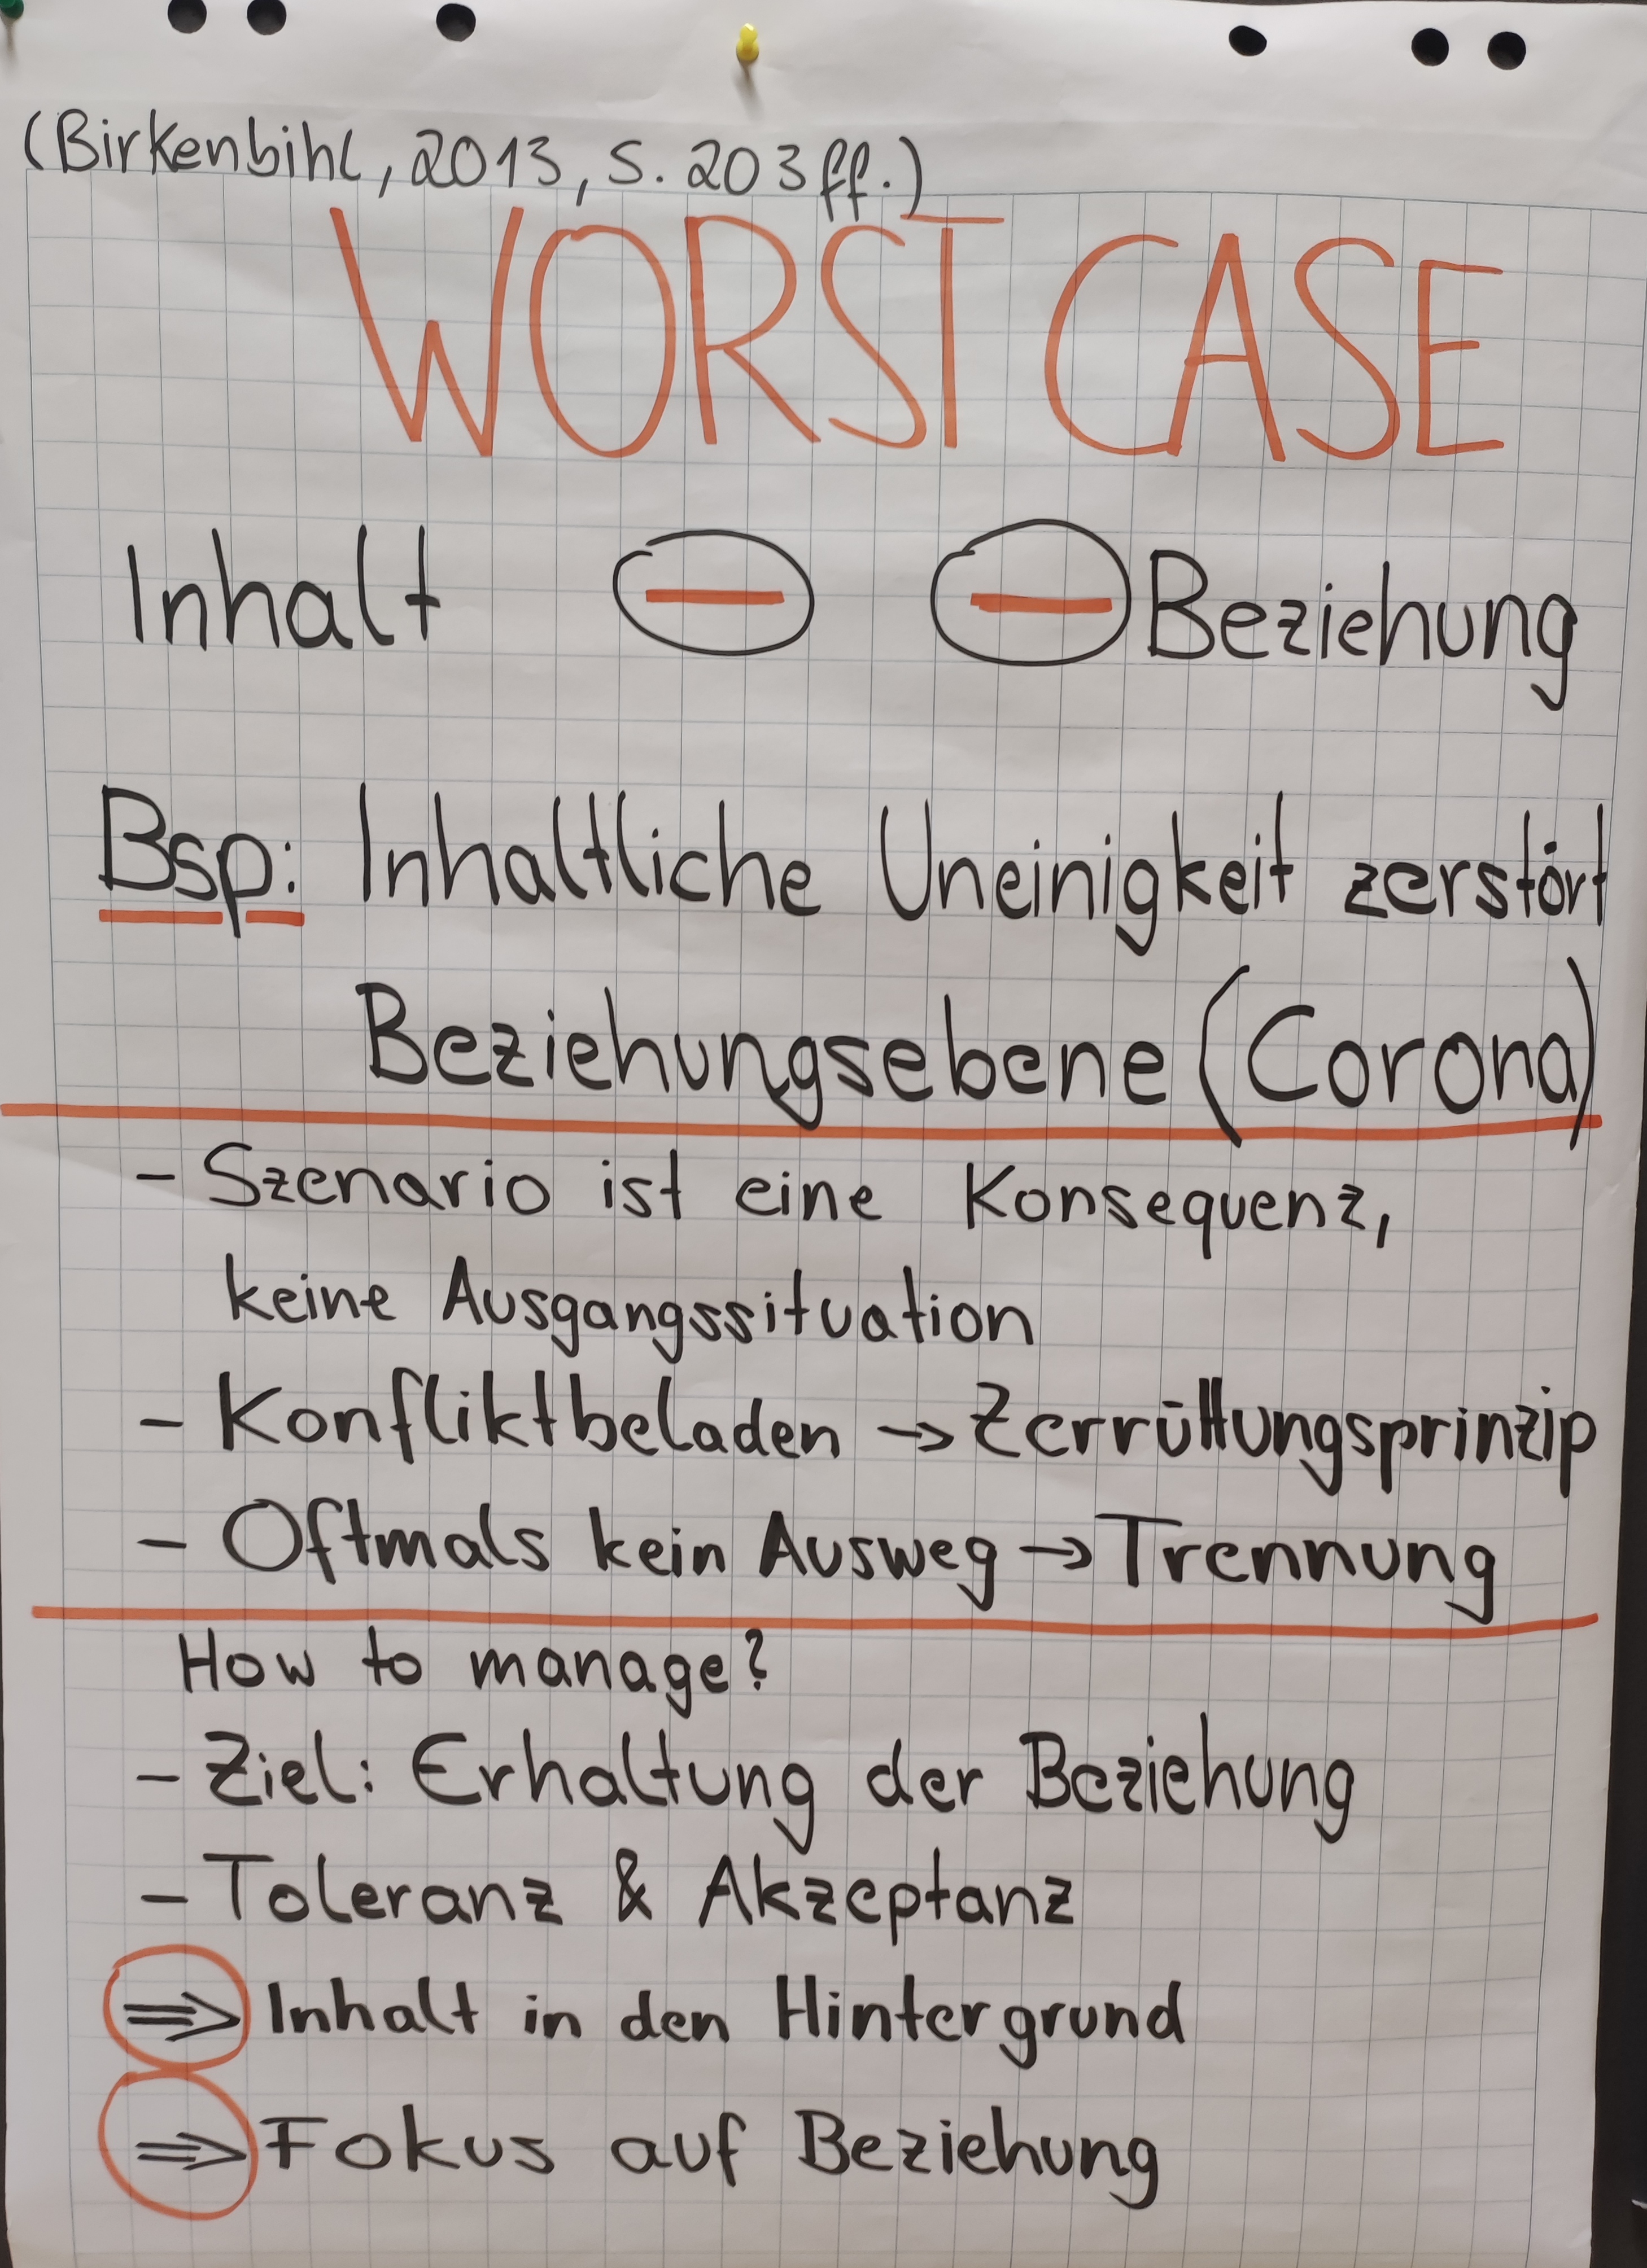 (Birkenbihl, 2013, S. 203 ff.)
WORST CASE
Inhalt − − Beziehung
Bsp: Inhaltliche Uneinigkeit zerstört
Beziehungsebene (Corona)
- Szenario ist eine Konsequenz,
keine Ausgangssituation
- Konfliktbeladen → Zerrüttungsprinzip
- Oftmals kein Ausweg → Trennung
How to manage?
- Ziel: Erhaltung der Beziehung
- Toleranz & Akzeptanz
⇒ Inhalt in den Hintergrund
⇒ Fokus auf Beziehung